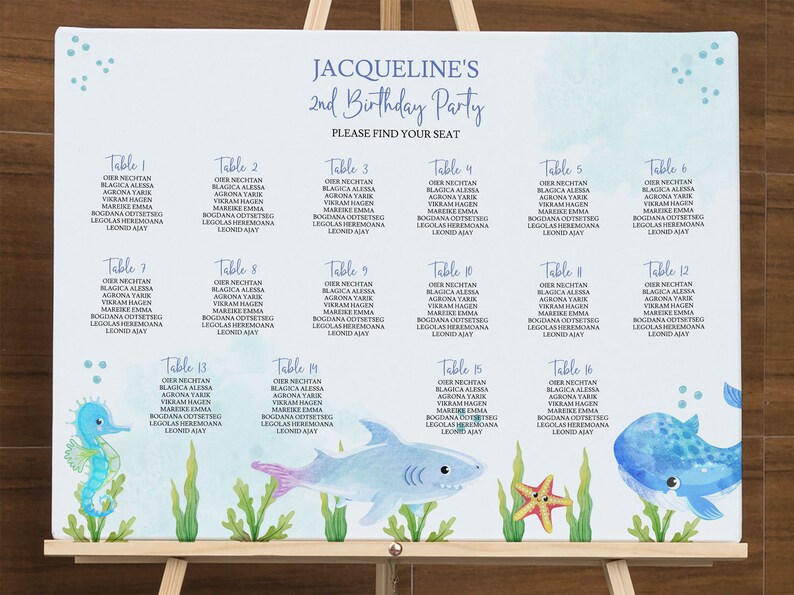 JACQUELINE'S
2nd Birthday Party
PLEASE FIND YOUR SEAT
Table 1
OIER NECHTAN
BLAGICA ALESSA
AGRONA YARIK
VIKRAM HAGEN
MAREIKE EMMA
BOGDANA ODTSETSEG
LEGOLAS HEREMOANA
LEONID AJAY
Table 2
OIER NECHTAN
BLAGICA ALESSA
AGRONA YARIK
VIKRAM HAGEN
MAREIKE EMMA
BOGDANA ODTSETSEG
LEGOLAS HEREMOANA
LEONID AJAY
Table 3
OIER NECHTAN
BLAGICA ALESSA
AGRONA YARIK
VIKRAM HAGEN
MAREIKE EMMA
BOGDANA ODTSETSEG
LEGOLAS HEREMOANA
LEONID AJAY
Table 4
OIER NECHTAN
BLAGICA ALESSA
AGRONA YARIK
VIKRAM HAGEN
MAREIKE EMMA
BOGDANA ODTSETSEG
LEGOLAS HEREMOANA
LEONID AJAY
Table 5
OIER NECHTAN
BLAGICA ALESSA
AGRONA YARIK
VIKRAM HAGEN
MAREIKE EMMA
BOGDANA ODTSETSEG
LEGOLAS HEREMOANA
LEONID AJAY
Table 6
OIER NECHTAN
BLAGICA ALESSA
AGRONA YARIK
VIKRAM HAGEN
MAREIKE EMMA
BOGDANA ODTSETSEG
LEGOLAS HEREMOANA
LEONID AJAY
Table 7
OIER NECHTAN
BLAGICA ALESSA
AGRONA YARIK
VIKRAM HAGEN
MAREIKE EMMA
BOGDANA ODTSETSEG
LEGOLAS HEREMOANA
LEONID AJAY
Table 8
OIER NECHTAN
BLAGICA ALESSA
AGRONA YARIK
VIKRAM HAGEN
MAREIKE EMMA
BOGDANA ODTSETSEG
LEGOLAS HEREMOANA
LEONID AJAY
Table 9
OIER NECHTAN
BLAGICA ALESSA
AGRONA YARIK
VIKRAM HAGEN
MAREIKE EMMA
BOGDANA ODTSETSEG
LEGOLAS HEREMOANA
LEONID AJAY
Table 10
OIER NECHTAN
BLAGICA ALESSA
AGRONA YARIK
VIKRAM HAGEN
MAREIKE EMMA
BOGDANA ODTSETSEG
LEGOLAS HEREMOANA
LEONID AJAY
Table 11
OIER NECHTAN
BLAGICA ALESSA
AGRONA YARIK
VIKRAM HAGEN
MAREIKE EMMA
BOGDANA ODTSETSEG
LEGOLAS HEREMOANA
LEONID AJAY
Table 12
OIER NECHTAN
BLAGICA ALESSA
AGRONA YARIK
VIKRAM HAGEN
MAREIKE EMMA
BOGDANA ODTSETSEG
LEGOLAS HEREMOANA
LEONID AJAY
Table 13
OIER NECHTAN
BLAGICA ALESSA
AGRONA YARIK
VIKRAM HAGEN
MAREIKE EMMA
BOGDANA ODTSETSEG
LEGOLAS HEREMOANA
LEONID AJAY
Table 14
OIER NECHTAN
BLAGICA ALESSA
AGRONA YARIK
VIKRAM HAGEN
MAREIKE EMMA
BOGDANA ODTSETSEG
LEGOLAS HEREMOANA
LEONID AJAY
Table 15
OIER NECHTAN
BLAGICA ALESSA
AGRONA YARIK
VIKRAM HAGEN
MAREIKE EMMA
BOGDANA ODTSETSEG
LEGOLAS HEREMOANA
LEONID AJAY
Table 16
OIER NECHTAN
BLAGICA ALESSA
AGRONA YARIK
VIKRAM HAGEN
MAREIKE EMMA
BOGDANA ODTSETSEG
LEGOLAS HEREMOANA
LEONID AJAY